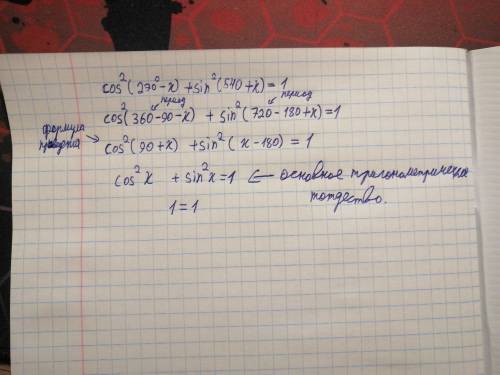 cos²(270°-x) + sin²(540+x) = 1
период период
cos²(360-90-x) + sin²(720-180+x) = 1
формула приведения
cos²(90+x) + sin²(x-180) = 1
cos²x + sin²x = 1 ← основное тригонометрическое
тождество.
1 = 1